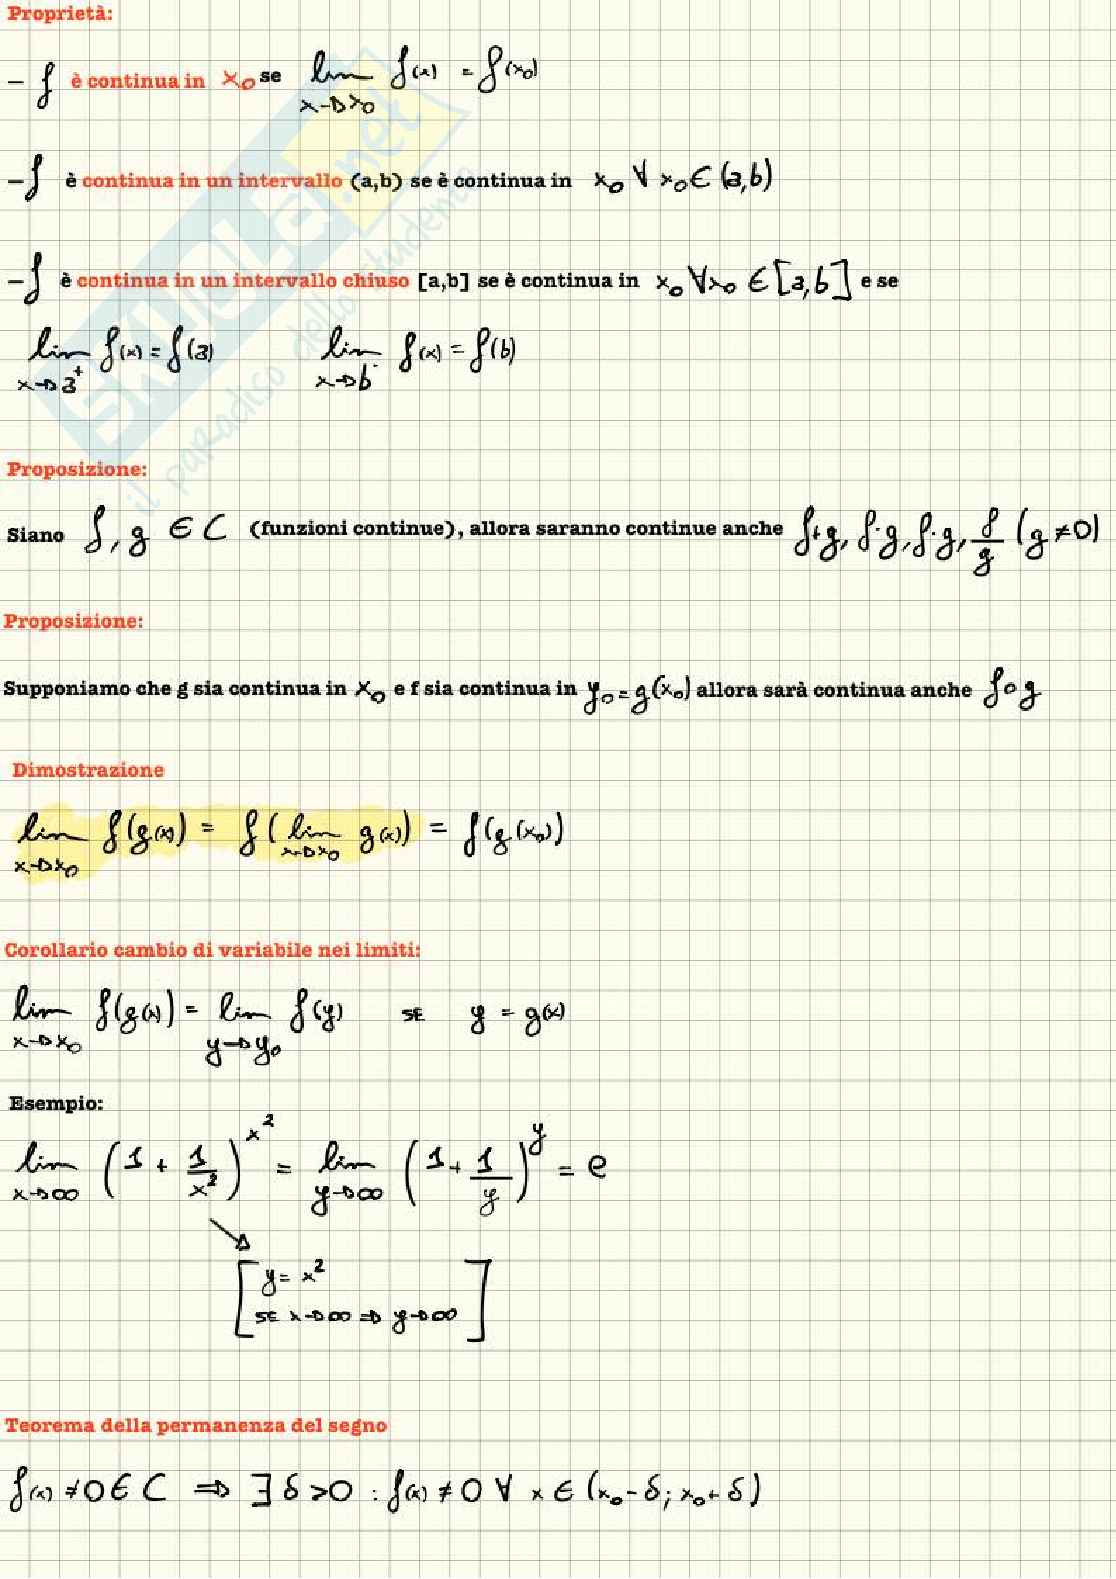 Proprietà:
- f è continua in x₀ se lim f(x) = f(x₀)
x→x₀
- f è continua in un intervallo (a,b) se è continua in x₀ ∀ x₀ ∈ (a,b)
- f è continua in un intervallo chiuso [a,b] se è continua in x₀ ∀x₀ ∈ [a,b] e se
lim f(x) = f(a) lim f(x) = f(b)
x→a⁺ x→b⁻
Proposizione:
Siano f, g ∈ C (funzioni continue), allora saranno continue anche f+g, f·g, f·g, f/g (g≠0)
Proposizione:
Supponiamo che g sia continua in x₀ e f sia continua in y₀=g(x₀) allora sarà continua anche f∘g
Dimostrazione
lim f(g(x)) = f(lim g(x)) = f(g(x₀))
x→x₀ x→x₀
Corollario cambio di variabile nei limiti:
lim f(g(x)) = lim f(y) SE y = g(x)
x→x₀ y→y₀
Esempio:
lim (1 + 1/x²)^x² = lim (1 + 1/y)^y = e
x→∞ y→∞
[y = x²
SE x→∞ ⇒ y→∞]
Teorema della permanenza del segno
f(x) ≠ 0 ∈ C ⇒ ∃ δ > 0 : f(x) ≠ 0 ∀ x ∈ (x₀-δ; x₀+δ)
SKUOLA.net
il paradiso dello studente